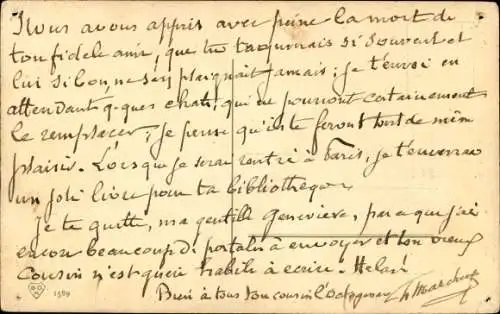 Nous avons appris avec peine la mort de
ton fidèle ami, que tu taquinais si souvent et
lui si bon, ne s'en plaignait jamais ; je t'envoi en
attendant q-ques chats, qui ne pourront certainement
le remplacer ; je pense qu'ils te feront tout de même
plaisir. Lorsque je serai rentré à Paris, je t'enverrai
un joli livre pour ta bibliothèque
Je te quitte, ma gentille Geneviève, parce que j'ai
encore beaucoup de à envoyer et ton vieux
Cousin n'est guère habile à écrire. Helas!
Bien à tous ton cousin
1389